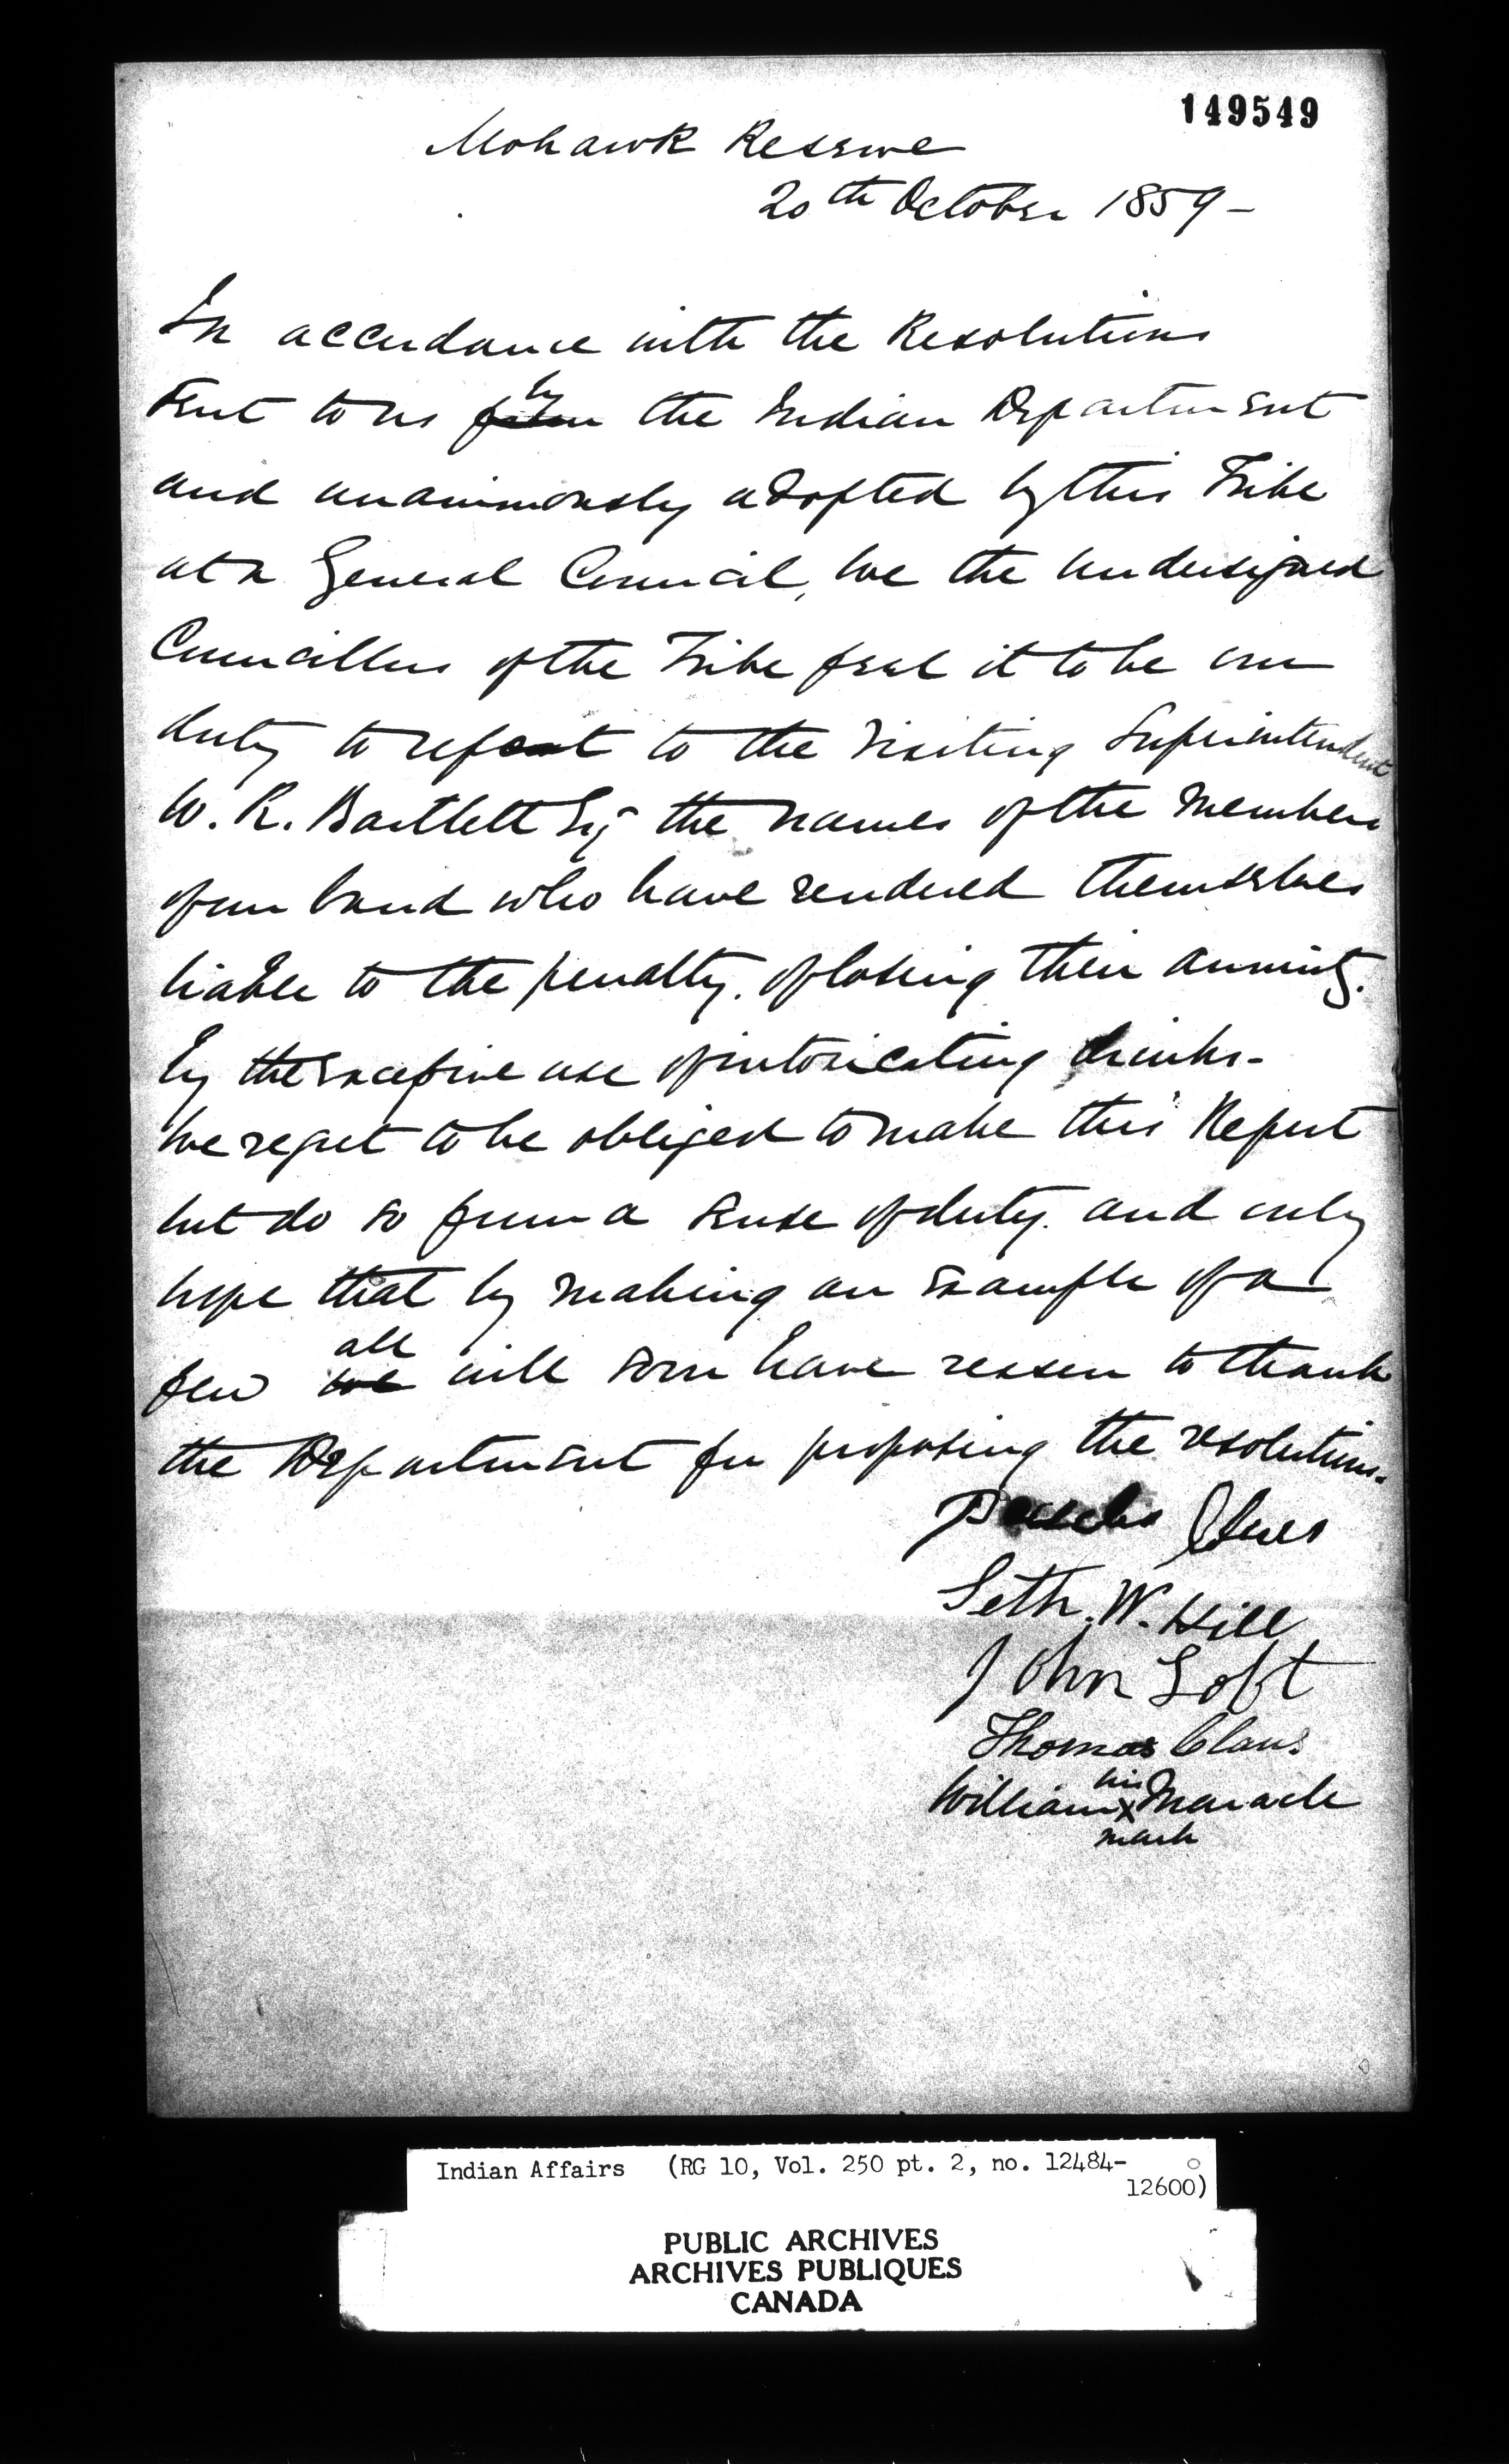 149549
Mohawk Reserve
20th October 1859 -
In accordance with the Resolutions
sent to us from by the Indian Department
and unanimously adopted by this Tribe
at a General Council, we the undersigned
Councillors of the Tribe feel it to be our
duty to report to the Visiting Superintendent
W. R. Bartlett Esq the names of the Members
of our band who have rendered themselves
liable to the penalty. of losing their annuity.
by the excessive use of intoxicating drinks -
We regret to be obliged to make this Report
but do so from a sense of duty. and only
hope that by making an example of a
few we all will soon have reason to thank
the Department for proposing the resolutions.
Claus
Seth. W. Hill
John Loft
Thomas Claus
William his x mark Maracle
Indian Affairs (RG 10, Vol. 250 pt. 2, no. 12484-
12600)
PUBLIC ARCHIVES
ARCHIVES PUBLIQUES
CANADA